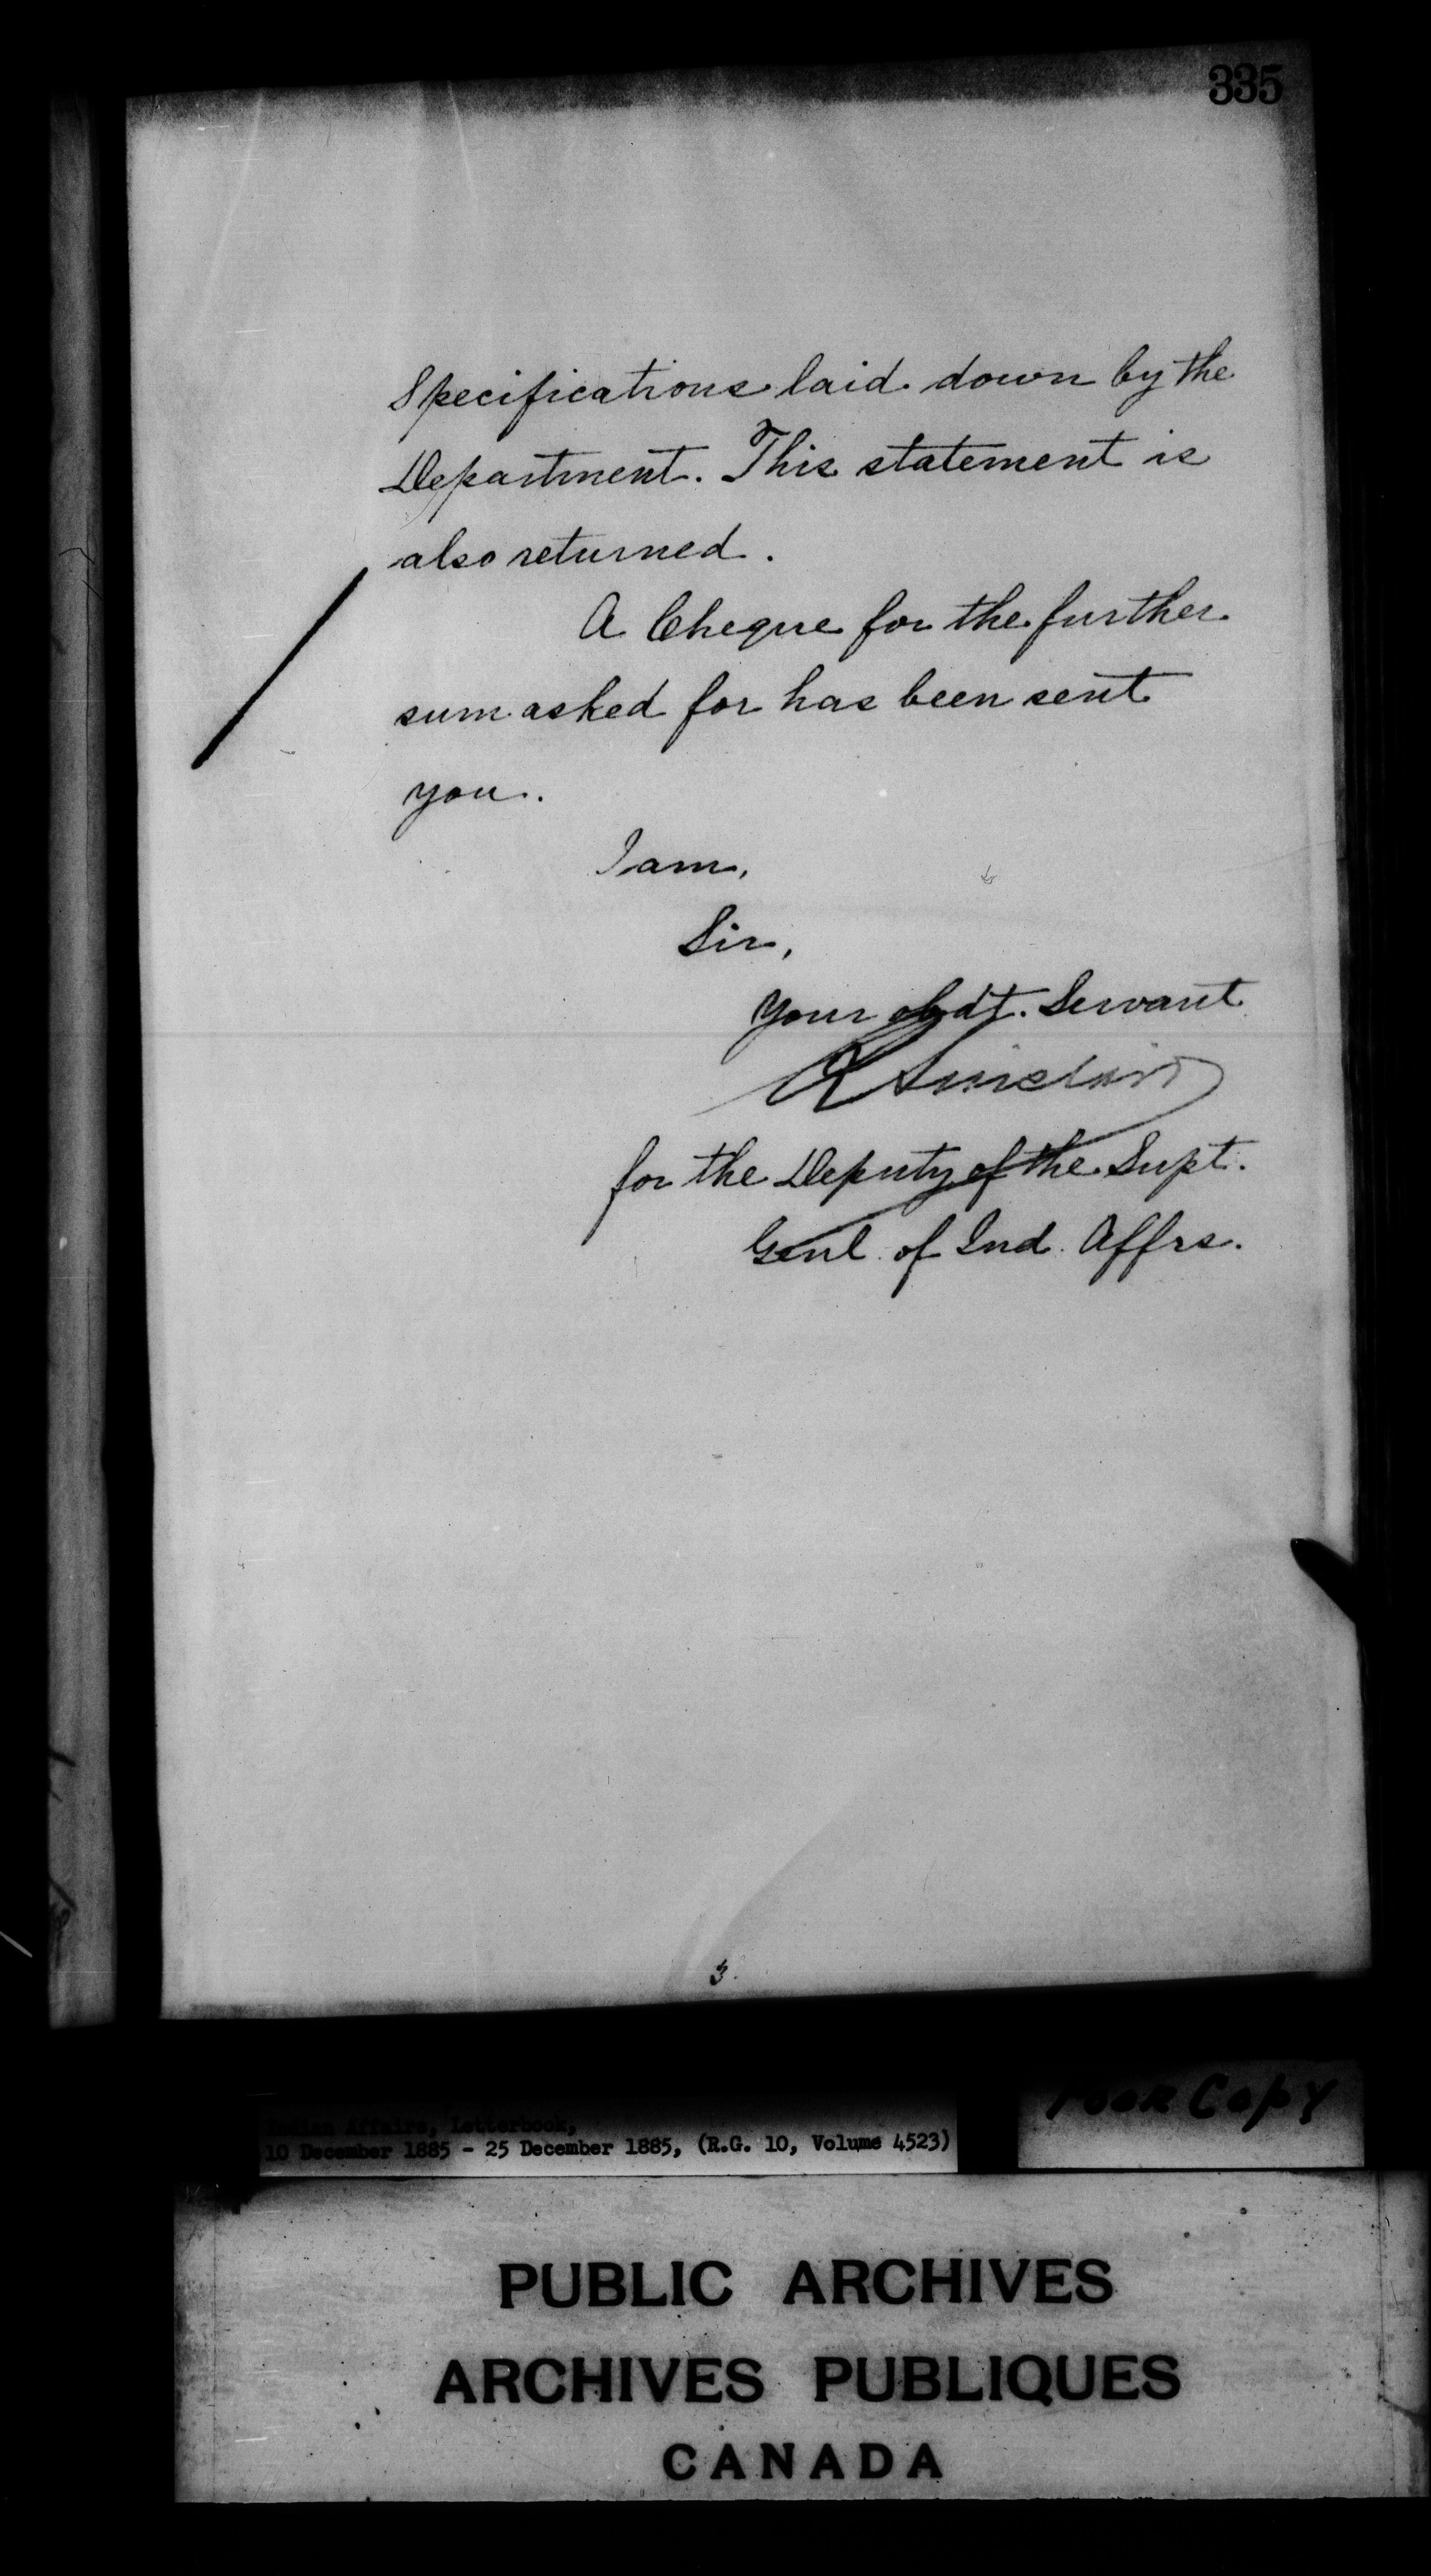 335
Specifications laid down by the
Department. This statement is
also returned.
A Cheque for the further
sum asked for has been sent
you.
I am,
Sir,
Your obdt. Servant
R Sinclair
for the Deputy of the Supt.
Genl. of Ind. Affrs.
3.
Indian Affairs, Letterbook,
10 December 1885 - 25 December 1885, (R.G. 10, Volume 4523)
Poor Copy
PUBLIC ARCHIVES
ARCHIVES PUBLIQUES
CANADA